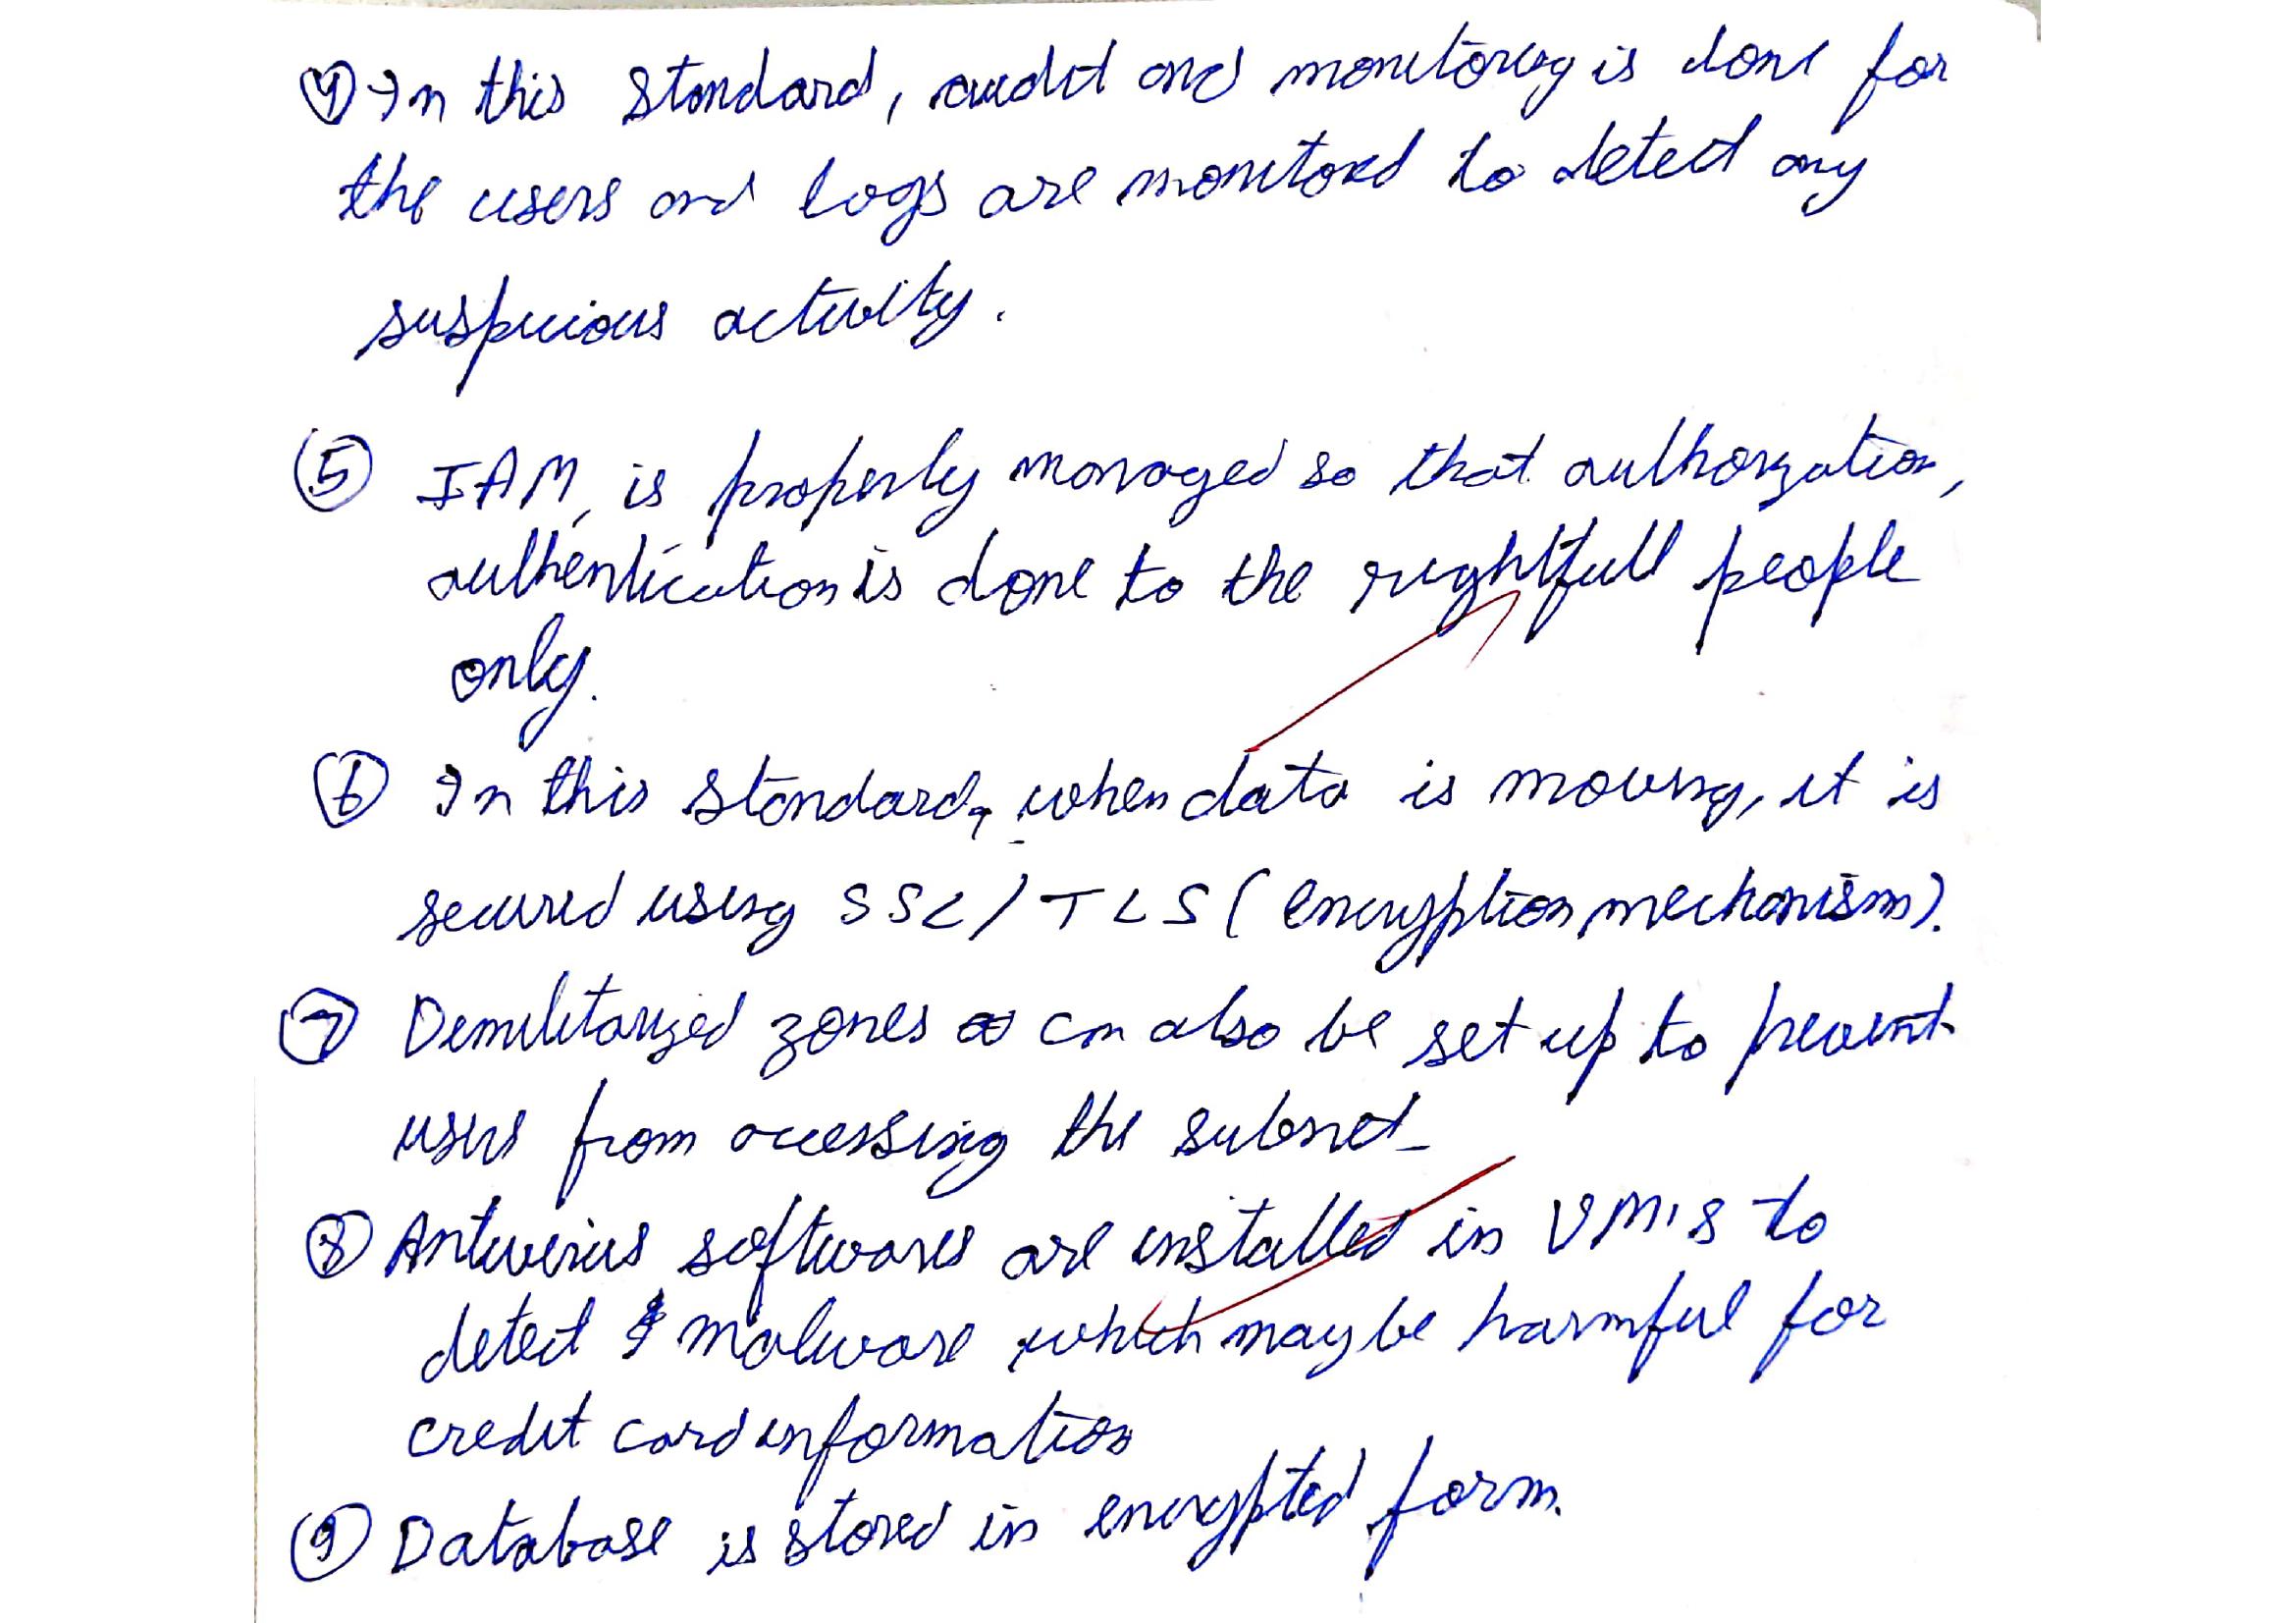 ④ In this standard, audit and monitoring is done for
the users and logs are monitored to detect any
suspicious activity.
⑤ IAM, is properly managed so that authorization,
authentication is done to the rightfull people
only.
⑥ In this standard, when data is moving, it is
secured using SSL/TLS (encryption mechanism).
⑦ Demilitarized zones can also be set up to prevent
users from accessing the subnet
⑧ Antivirus softwares are installed in VM's to
detect malware which may be harmful for
credit card information
⑨ Database is stored in encrypted form.